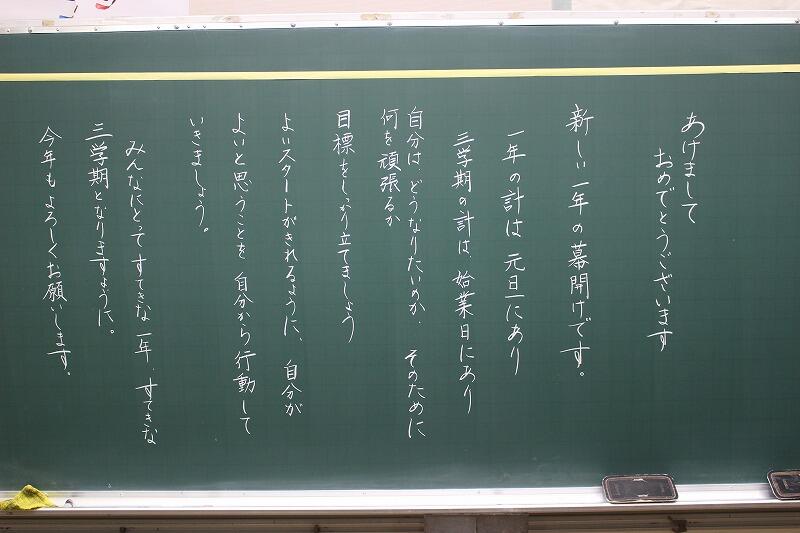 あけまして
おめでとうございます
新しい一年の幕開けです。
一年の計は元旦にあり
三学期の計は、始業日にあり
自分は、どうなりたいのか、そのために
何を頑張るか
目標をしっかり立てましょう
よいスタートがきれるように、自分が
よいと思うことを自分から行動して
いきましょう。
みんなにとってすてきな一年、すてきな
三学期となりますように。
今年もよろしくお願いします。